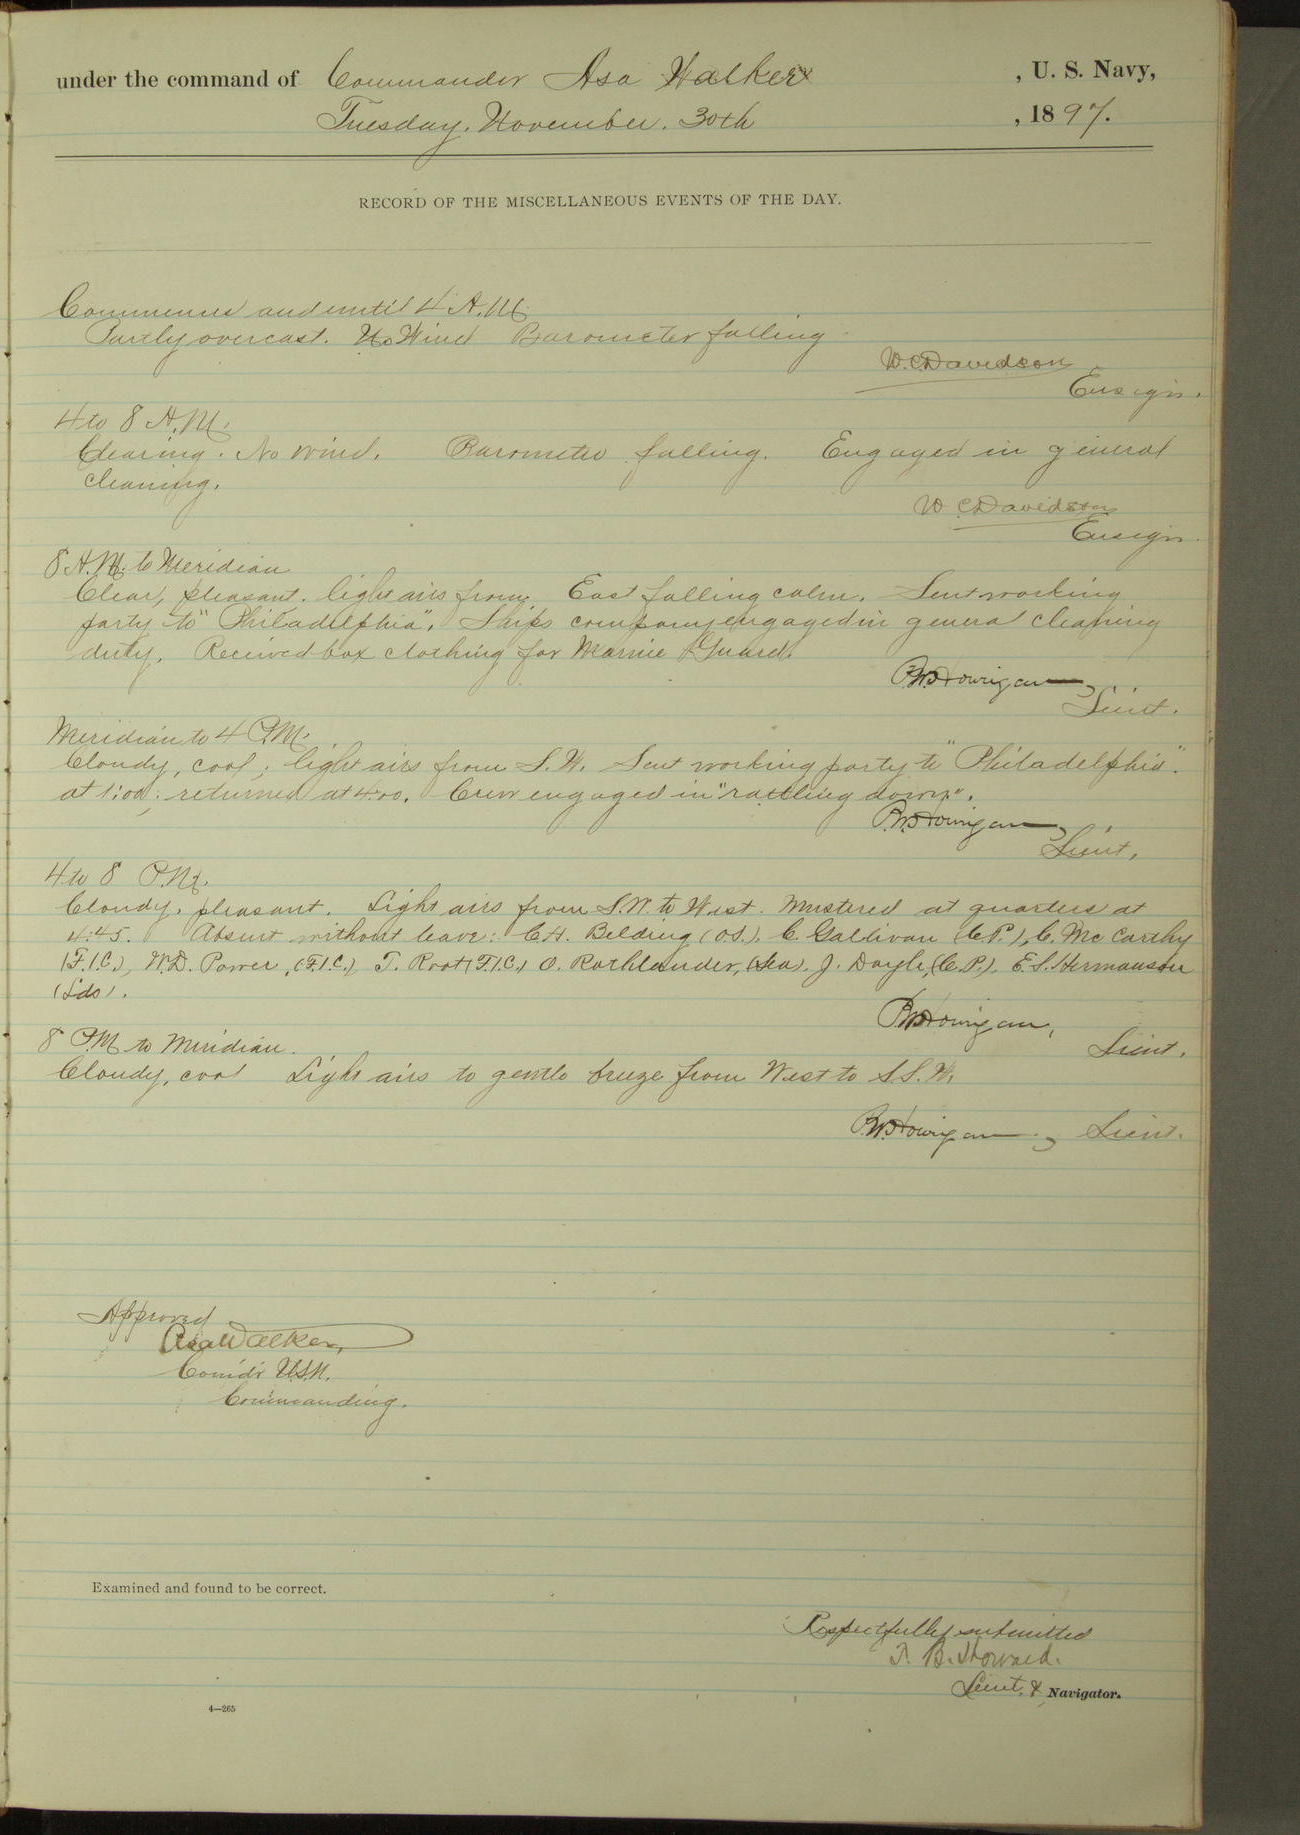 under the command of Commander Asa Walker , U. S. Navy,
Tuesday, November. 30th , 1897.
RECORD OF THE MISCELLANEOUS EVENTS OF THE DAY.
Commence and until 4 A.M.
Partly overcast. No Wind Barometer falling
W.C. Davidson
Ensign.
4 to 8 A.M.
Clearing. No wind. Barometer falling. Engaged in general
cleaning.
W.C. Davidson
Ensign
8 A.M. to Meridian
Clear, pleasant. light airs from East falling calm. Sent working
party to "Philadelphia". Ships company engaged in general cleaning
duty. Received box clothing for Marine Guard.
P.W. Hourigan
Lieut.
Meridian to 4 P.M.
Cloudy, cool; light airs from S.W. Sent working party to "Philadelphia".
at 1:00; returned at 4:00. Crew engaged in "rattling down".
P.W. Hourigan
Lieut.
4 to 8 P.M.
Cloudy, pleasant. Light airs from S.W. to West. Mustered at quarters at
4:45. Absent without leave: C.H. Belding (O.S.), C. Gallivan (C.P.), C. McCarthy
(F.1.C.), W.D. Power, (F.1.C.), T. Root (F.1.C.) O. Rathlander, (Sea). J. Doyle, (C.P.), E.S. Hermanson
(Lds).
P.W. Hourigan,
Lieut.
8 P.M to Meridian.
Cloudy, cool Light airs to gentle breeze from West to S.S.W.
P.W. Hourigan, Lieut.
Approved
Asa Walker,
Comd'r U.S.N.
Commanding.
Examined and found to be correct.
Respectfully submitted
T. B. Howard.
Lieut. & Navigator.
4—265